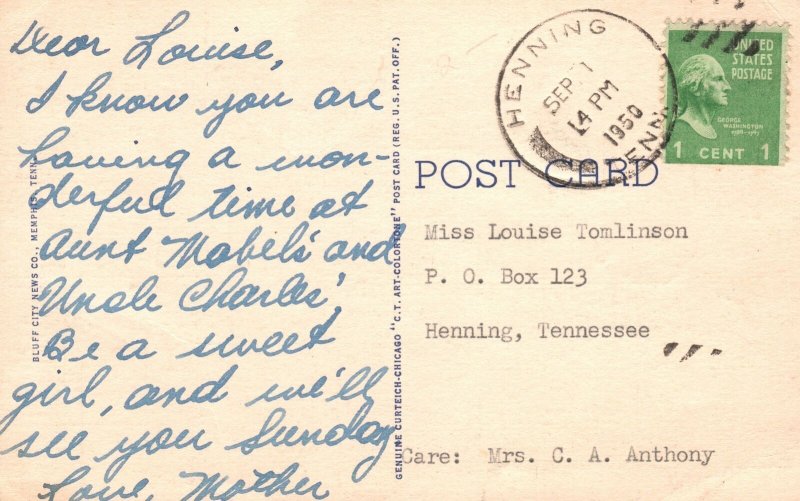 Dear Louise,
I know you are
having a won-
derful time at
Aunt Mabel's and
Uncle Charles',
Be a sweet
girl, and we'll
see you Sunday
Love, Mother
BLUFF CITY NEWS CO., MEMPHIS, TENN.
GENUINE CURTEICH-CHICAGO "C.T. ART-COLORTONE" POST CARD (REG. U.S. PAT. OFF.)
HENNING
SEP 1
4 PM
1950
TENN.
UNITED
STATES
POSTAGE
GEORGE
WASHINGTON
1789-1797
1 CENT 1
POST CARD
Miss Louise Tomlinson
P. O. Box 123
Henning, Tennessee
Care: Mrs. C. A. Anthony